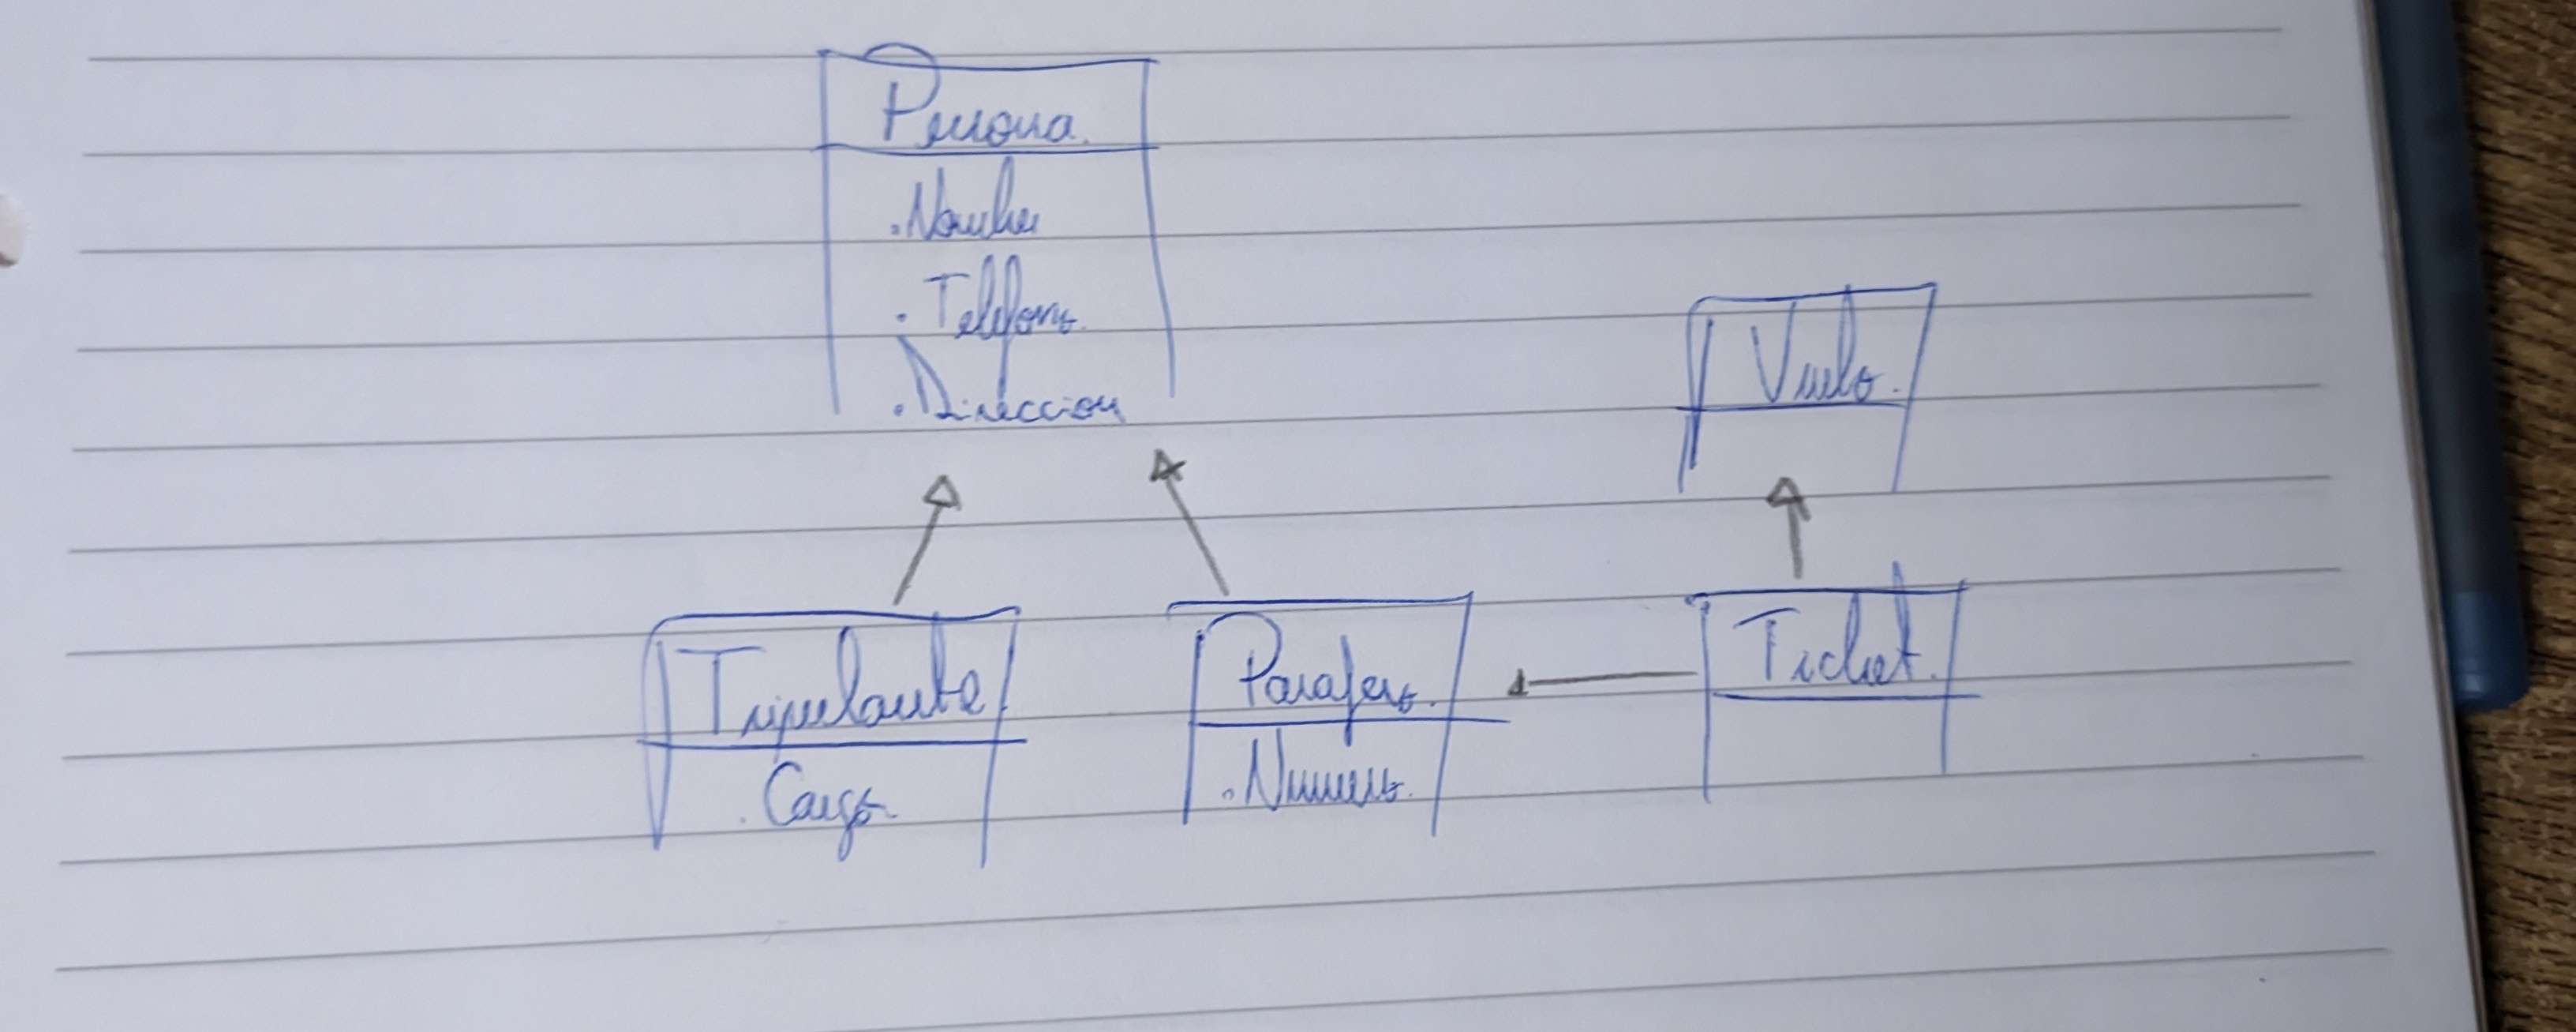 Persona.
. Nombre
. Telefono.
. Direccion
Vuelo.
Tripulante.
. Cargo.
Pasajero.
. Numero.
Ticket.